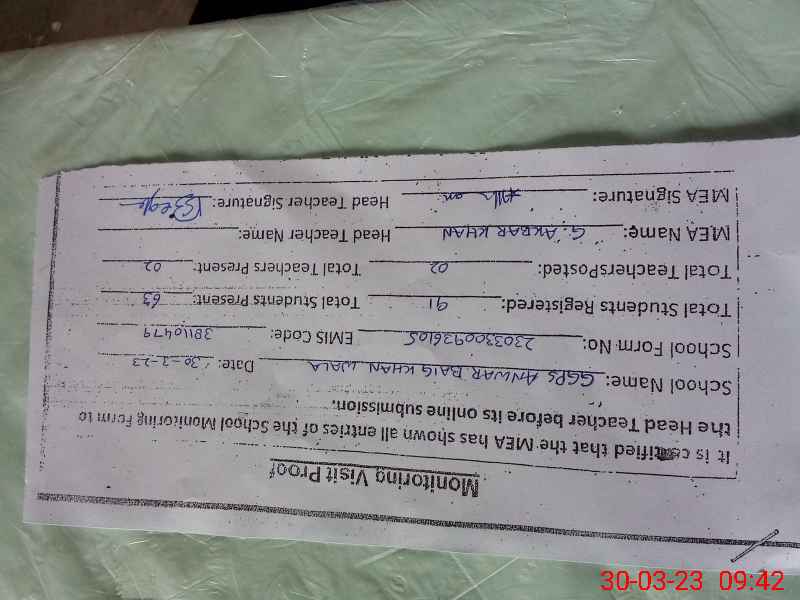 Monitoring Visit Proof
It is certified that the MEA has shown all entries of the School Monitoring Form to
the Head Teacher before its online submission.
School Name: GGPS ANWAR BAIG KHAN WALA Date: 30-3-23
School Form No: 2303300936105 EMIS Code: 38110479
Total Students Registered: 91 Total Students Present: 63
Total TeachersPosted: 02 Total Teachers Present: 02
MEA Name: G. AKBAR KHAN Head Teacher Name:
MEA Signature: Head Teacher Signature:
30-03-23 09:42